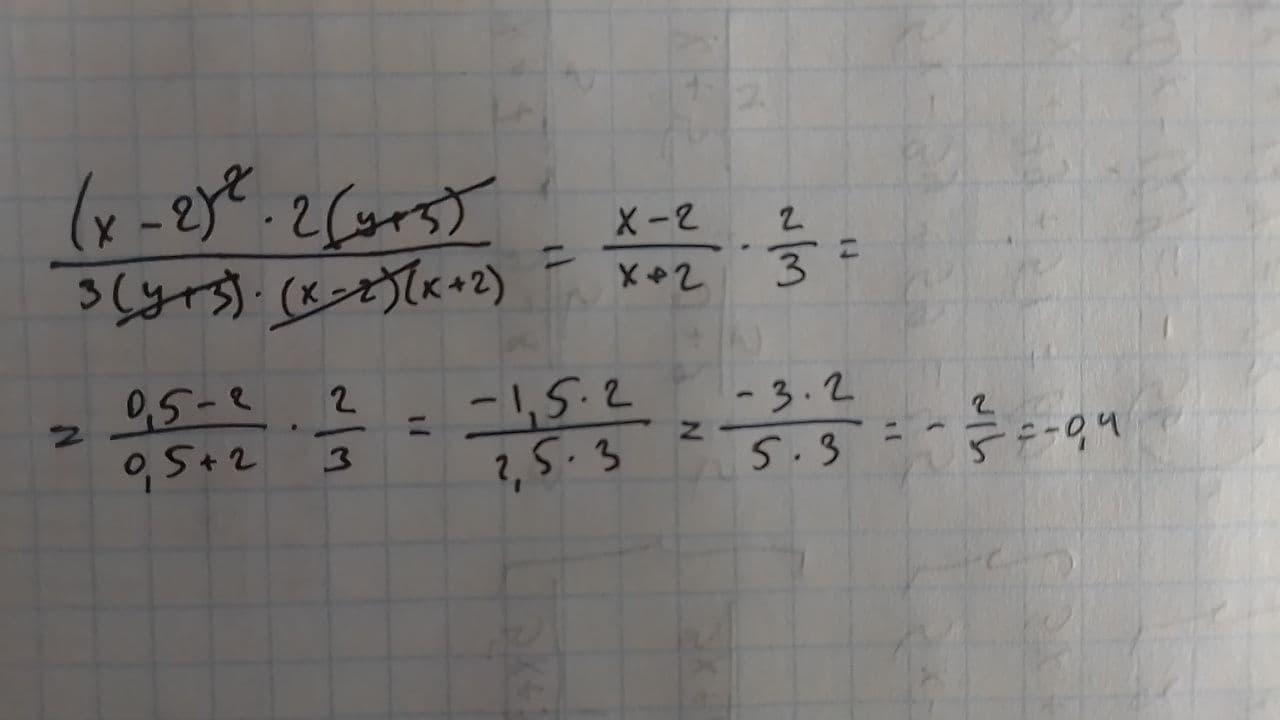 (x-2)² · 2(y+3) / 3(y+3) · (x-2)(x+2) = x-2 / x+2 · 2/3 =
= 0,5-2 / 0,5+2 · 2/3 = -1,5·2 / 2,5·3 = -3·2 / 5·3 = -2/5 = -0,4